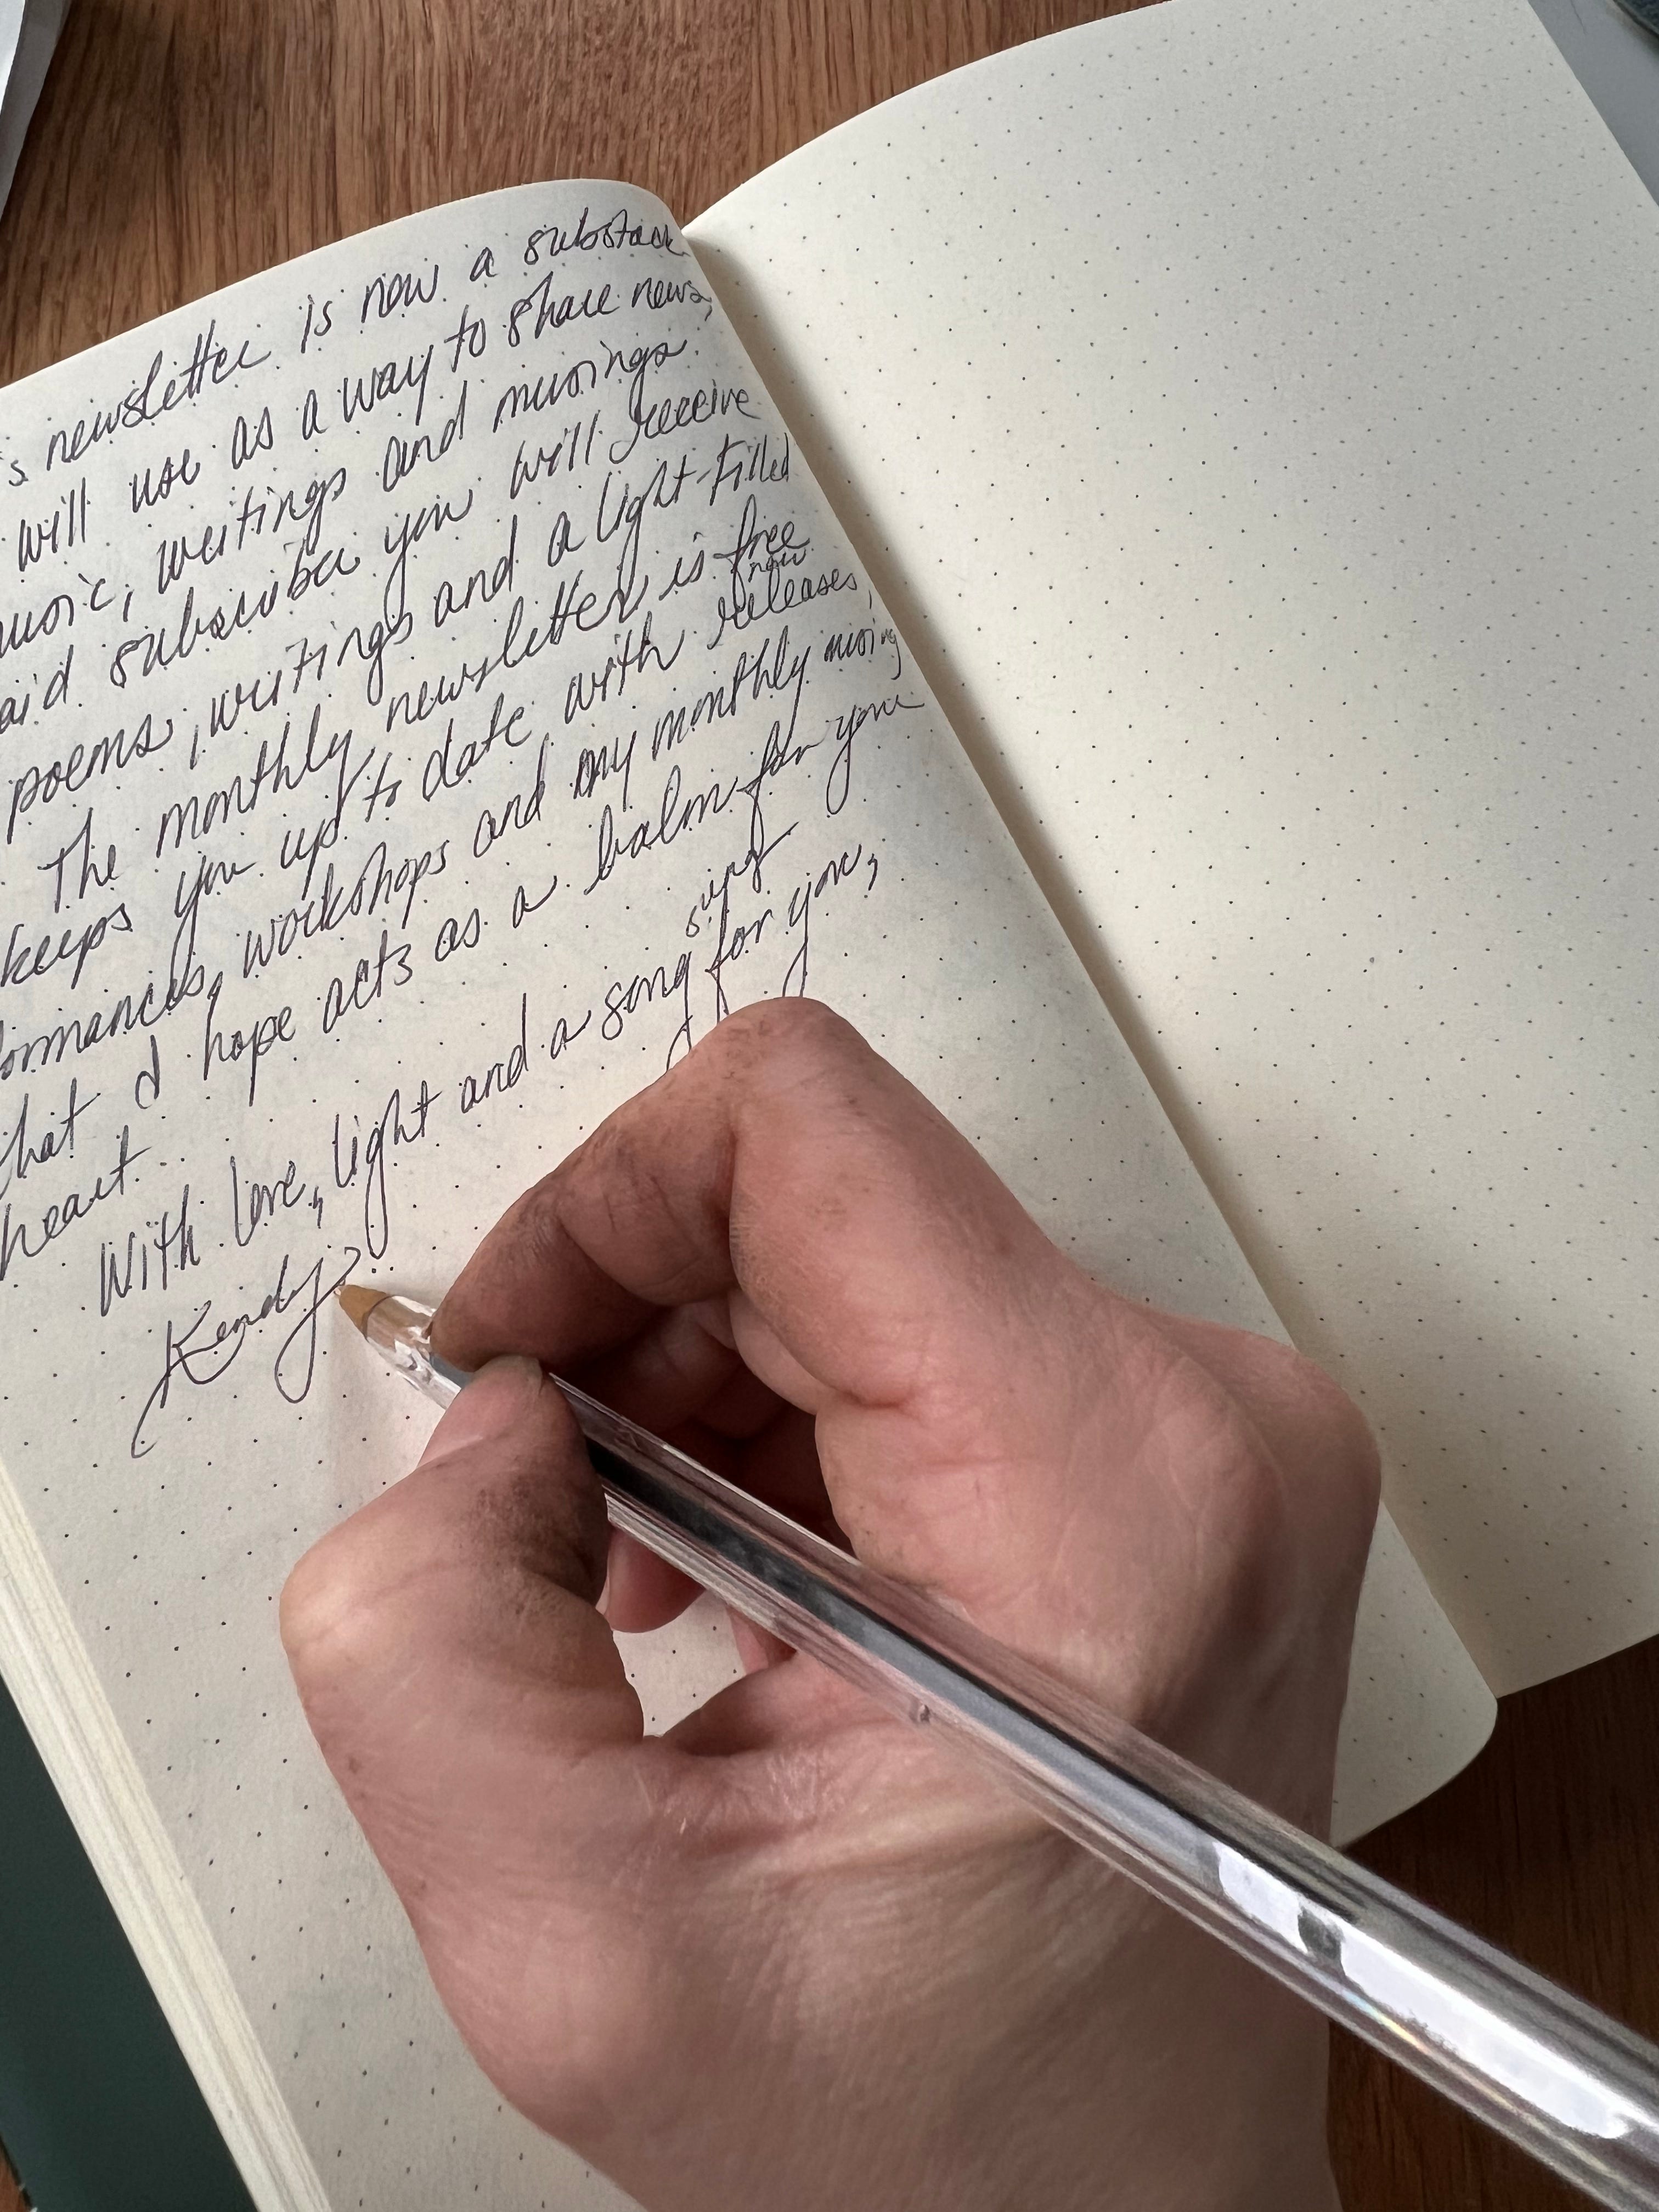 s newsletter is now a substack
will use as a way to share news,
music, writings and musings.
aid subscriber you will receive
poems, writings and a light-filled
The monthly newsletter is free
new
keeps you up to date with releases,
formances, workshops and my monthly musing
that I hope acts as a balm for your
heart.
sung
With love, light and a song for you,
Kendy